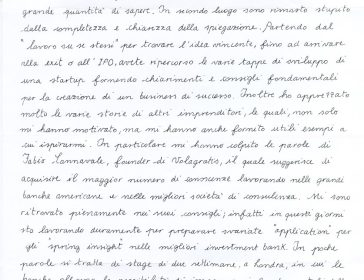 grande quantità di saperi. In secondo luogo sono rimasto stupito
dalla completezza e chiarezza della spiegazione. Partendo dal
"lavoro su se stessi" per trovare l'idea vincente, fino ad arrivare
alla exit o all'IPO, avete ripercorso le varie tappe di sviluppo di
una startup fornendo chiarimenti e consigli fondamentali
per la creazione di un business di successo. Inoltre ho apprezzato
molto le varie storie di altri imprenditori, le quali, non solo
mi hanno motivato, ma mi hanno anche fornito utili esempi a
cui ispirarmi. In particolare mi hanno colpito le parole di
Fabio Carnavale, founder di Volagratis, il quale suggerisce di
acquisire il maggior numero di conoscenze lavorando nelle grandi
banche americane e nelle migliori società di consulenza. Mi sono
ritrovato pienamente nei suoi consigli; infatti in questi giorni
sto lavorando duramente per preparare svariate "application" per
gli "spring insight" nelle migliori investment bank. In poche
parole si tratta di stage di due settimane, a Londra, in cui le